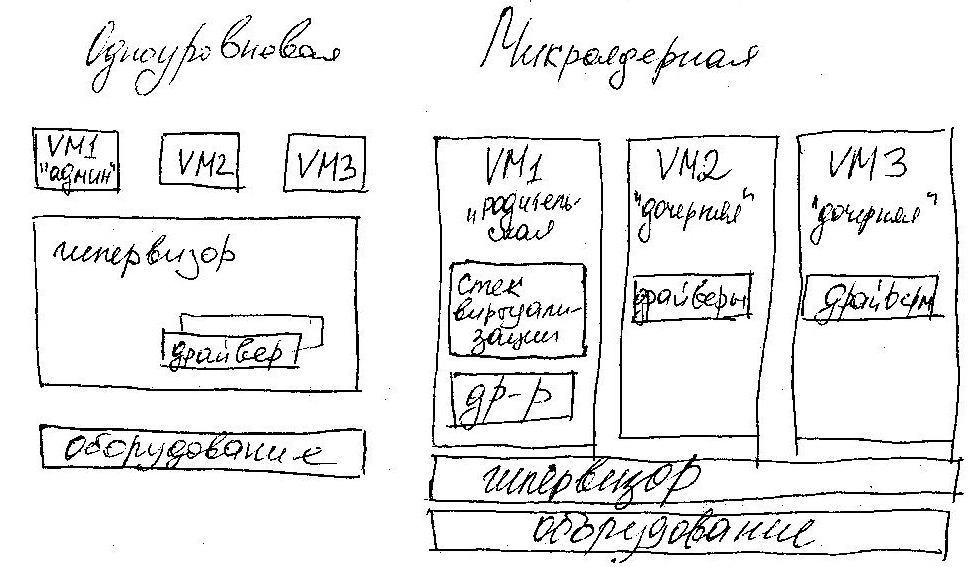 Одноуровневая
VM1
"админ"
VM2
VM3
гипервизор
драйвер
оборудование
Микроядерная
VM1
"родитель-
ская
Стек
виртуали-
зации
др-р
VM2
"дочерняя"
драйверы
VM3
"дочерняя"
драйверы
гипервизор
оборудование